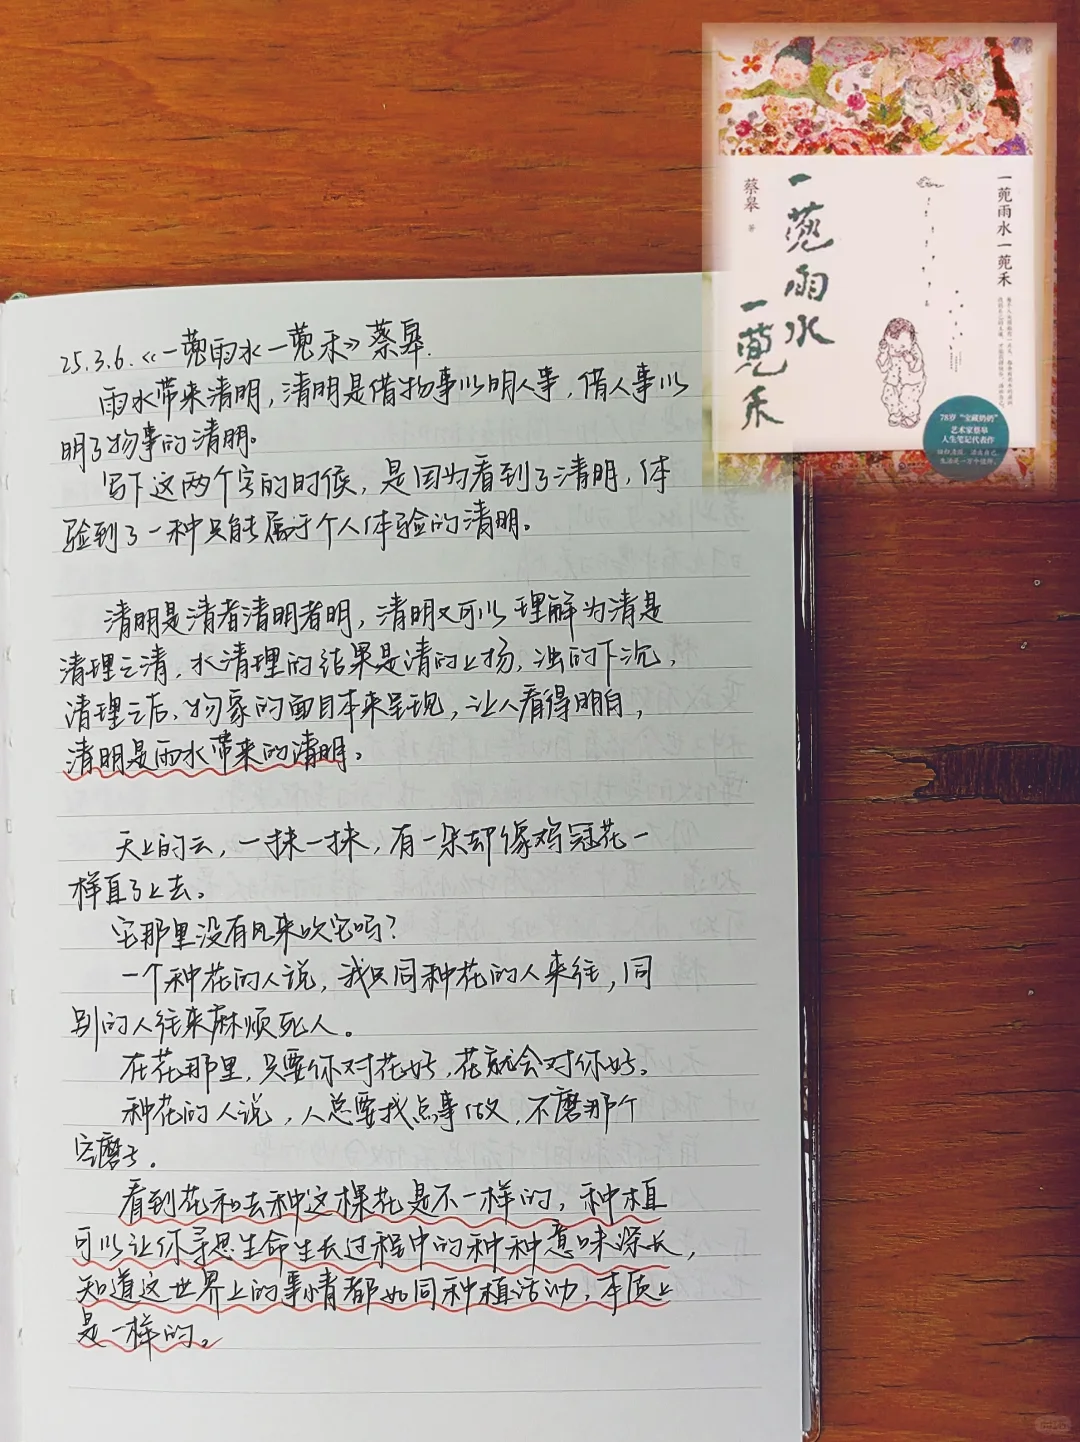 蔡皋 著
一蔸雨水
一蔸禾
一蔸雨水一蔸禾
78岁“宝藏奶奶”
艺术家蔡皋
人生笔记代表作
25.3.6.《一蔸雨水一蔸禾》蔡皋.
雨水带来清明，清明是借物事以明人事，借人事以
明了物事的清明。
写下这两个字的时候，是因为看到了清明，体
验到了一种只能属于个人体验的清明。
清明是清者清明者明，清明又可以理解为清是
清理之清，水清理的结果是清的上扬，浊的下沉，
清理之后，物象的面目本来呈现，让人看得明白，
清明是雨水带来的清明。
天上的云，一抹一抹，有一朵却像鸡冠花一
样直了上去。
它那里没有风来吹它吗？
一个种花的人说，我只同种花的人来往，同
别的人往来麻烦死人。
在花那里，只要你对花好，花就会对你好。
种花的人说，人总要找点事做，不磨那个
空磨子。
看到花和去种这棵花是不一样的，种植
可以让你寻思生命生长过程中的种种意味深长，
知道这世界上的事情都如同种植活动，本质上
是一样的。